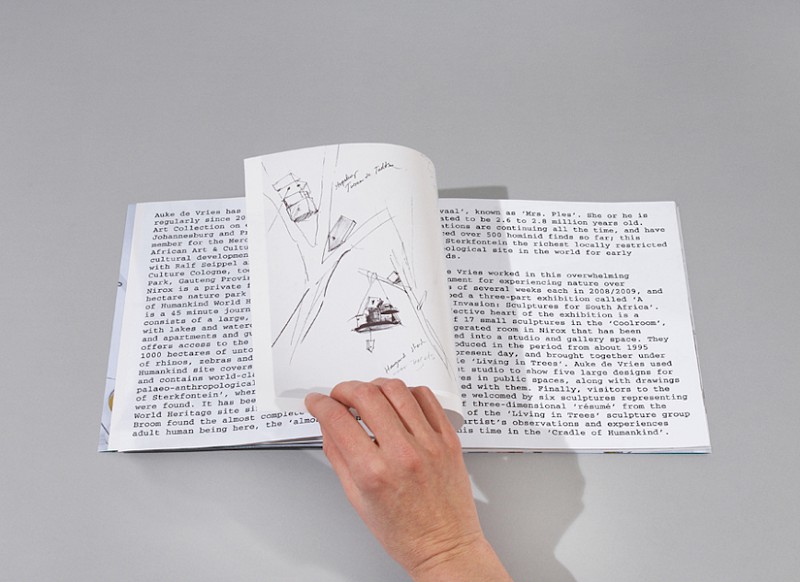 Auke de Vries has
regularly since 20
Art Collection on
Johannesburg and Pr
member for the Merc
African Art & Cultu
cultural developmen
with Ralf Seippel a
Culture Cologne, too
Park, Gauteng Provin
Nirox is a private f
hectare nature park
of Humankind World H
is a 45 minute journ
consists of a large,
with lakes and waterc
and apartments and gu
offers access to the
1000 hectares of unto
of rhinos, zebras and
Humankind site covers
and contains world-cla
palaeo-anthropological
of Sterkfontein', wher
were found. It has bee
World Heritage site si
Broom found the almost complete
adult human being here, the 'almos
vaal', known as 'Mrs. Ples'. She or he is
ated to be 2.6 to 2.8 million years old.
ations are continuing all the time, and have
ed over 500 hominid finds so far; this
Sterkfontein the richest locally restricted
ological site in the world for early
ds.
e Vries worked in this overwhelming
nment for experiencing nature over
s of several weeks each in 2008/2009, and
ped a three-part exhibition called 'A
Invasion: Sculptures for South Africa'.
ective heart of the exhibition is a
f 17 small sculptures in the 'Coolroom',
gerated room in Nirox that has been
ed into a studio and gallery space. They
oduced in the period from about 1995
present day, and brought together under
le 'Living in Trees'. Auke de Vries used
t studio to show five large designs for
es in public spaces, along with drawings
ed with them. Finally, visitors to the
s welcomed by six sculptures representing
f three-dimensional 'résumé' from the
of the 'Living in Trees' sculpture group
artist's observations and experiences
is time in the 'Cradle of Humankind'.